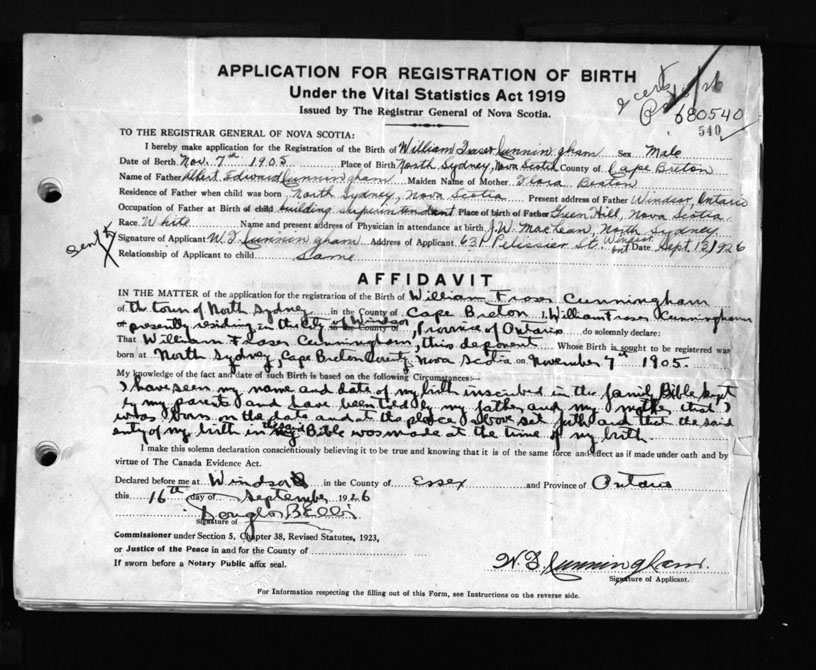 APPLICATION FOR REGISTRATION OF BIRTH
Under the Vital Statistics Act 1919
Issued by The Registrar General of Nova Scotia.
680540
540
TO THE REGISTRAR GENERAL OF NOVA SCOTIA:
I hereby make application for the Registration of the Birth of William Fraser Cunningham Sex Male
Date of Berth Nov. 7th 1905 Place of Birth North Sydney, Nova Scotia County of Cape Breton
Name of Father Albert Edward Cunningham Maiden Name of Mother Flora Beaton
Residence of Father when child was born North Sydney, Nova Scotia Present address of Father Windsor, Ontario
Occupation of Father at Birth of child building superintendent Place of birth of Father Green Hill, Nova Scotia
Race White Name and present address of Physician in attendance at birth J.W. MacLean, North Sydney
Signature of Applicant W.F. Cunningham Address of Applicant 631 Pelissier St. Windsor Ont Date Sept 12/926
Relationship of Applicant to child Same
AFFIDAVIT
IN THE MATTER of the application for the registration of the Birth of William Fraser Cunningham
of The town of North Sydney in the County of Cape Breton I, William Fraser Cunningham
presently residing in the City of Windsor, Province of Ontario do solemnly declare:
That William Fraser Cunningham, this deponent Whose Birth is sought to be registered was
born at North Sydney, Cape Breton County, Nova Scotia on November 7th 1905.
My knowledge of the fact and date of such Birth is based on the following Circumstances:—
I have seen my name and date of my birth inscribed in the family Bible kept
by my parents and have been told by my father and my mother that I
was born on the date and at the place above set forth and that the said
entry of my birth in the said Bible was made at the time of my birth
I make this solemn declaration conscientiously believing it to be true and knowing that it is of the same force and effect as if made under oath and by
virtue of The Canada Evidence Act.
Declared before me at Windsor in the County of Essex and Province of Ontario
this 16th day of September 1926
Douglas B Ellis
Signature of
Commissioner under Section 5, Chapter 38, Revised Statutes, 1923,
or Justice of the Peace in and for the County of
If sworn before a Notary Public affix seal.
W.F. Cunningham.
Signature of Applicant.
For Information respecting the filling out of this Form, see Instructions on the reverse side.